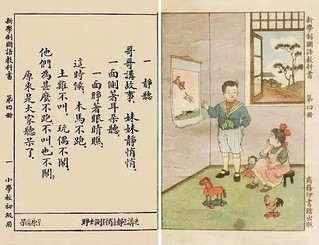 新學制國語教科書 第四冊
一 靜聽
哥哥講故事，妹妹靜悄悄，
一面側著耳朵聽，
一面睜著眼睛瞧。
這時候，木馬不跑，
土雞不叫，玩偶不鬧。
他們為甚麼不跑不叫也不鬧，
原來是大家聽呆了。
一 小學校初級用
新學制國語教科書 第四冊
商務印書館出版